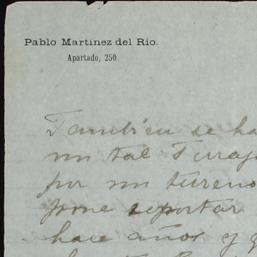 Pablo Martinez del Rio.
Apartado, 250.
Tambien se ha
un tal
por un terreno
pone reportar
hace años y q